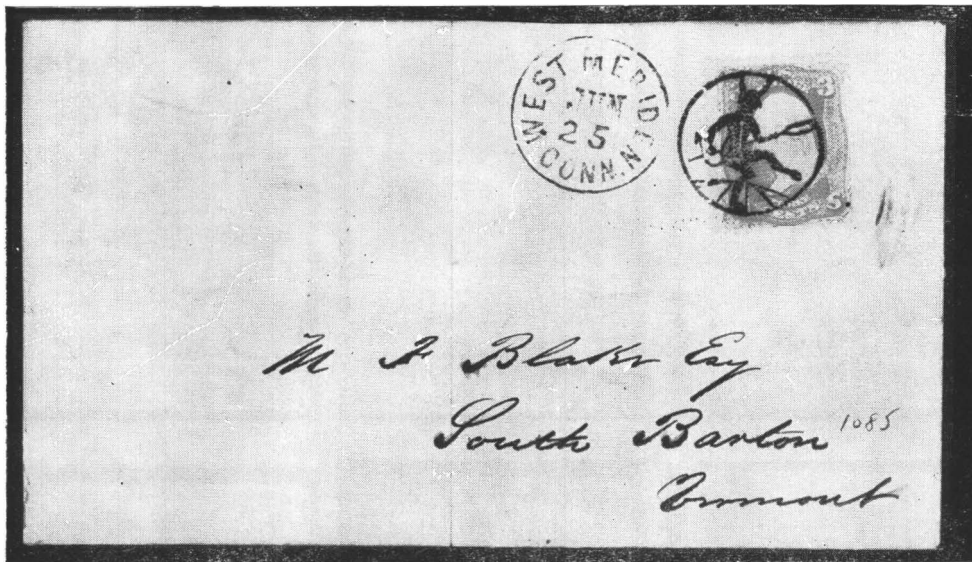 WEST MERIDEN
JUN
25
CONN.
M F Blake Esq
South Barton
1085
Vermont